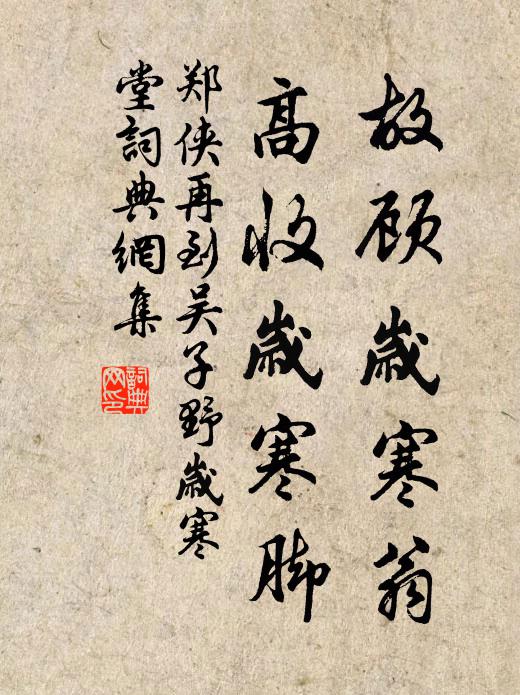 故顾岁寒翁
高收岁寒脚
郑侠再到吴子野岁寒
堂词典网集
词典网印